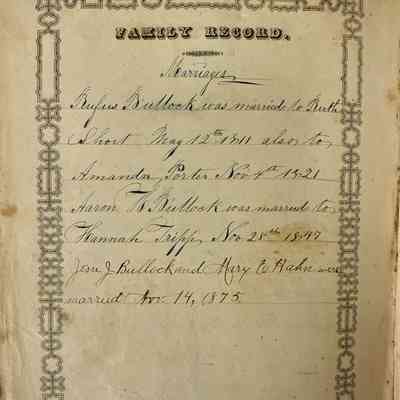 FAMILY RECORD.
Marriages
Rufus Bullock was married to Ruth
Short May 12th 1811 also to
Amanda Porter Nov 4th 1821
Aaron H Bullock was married to
Hannah Tripp, Nov 28th 1847
Jesse J Bullock and Mary E Hahn were
married Nov. 14, 1875.